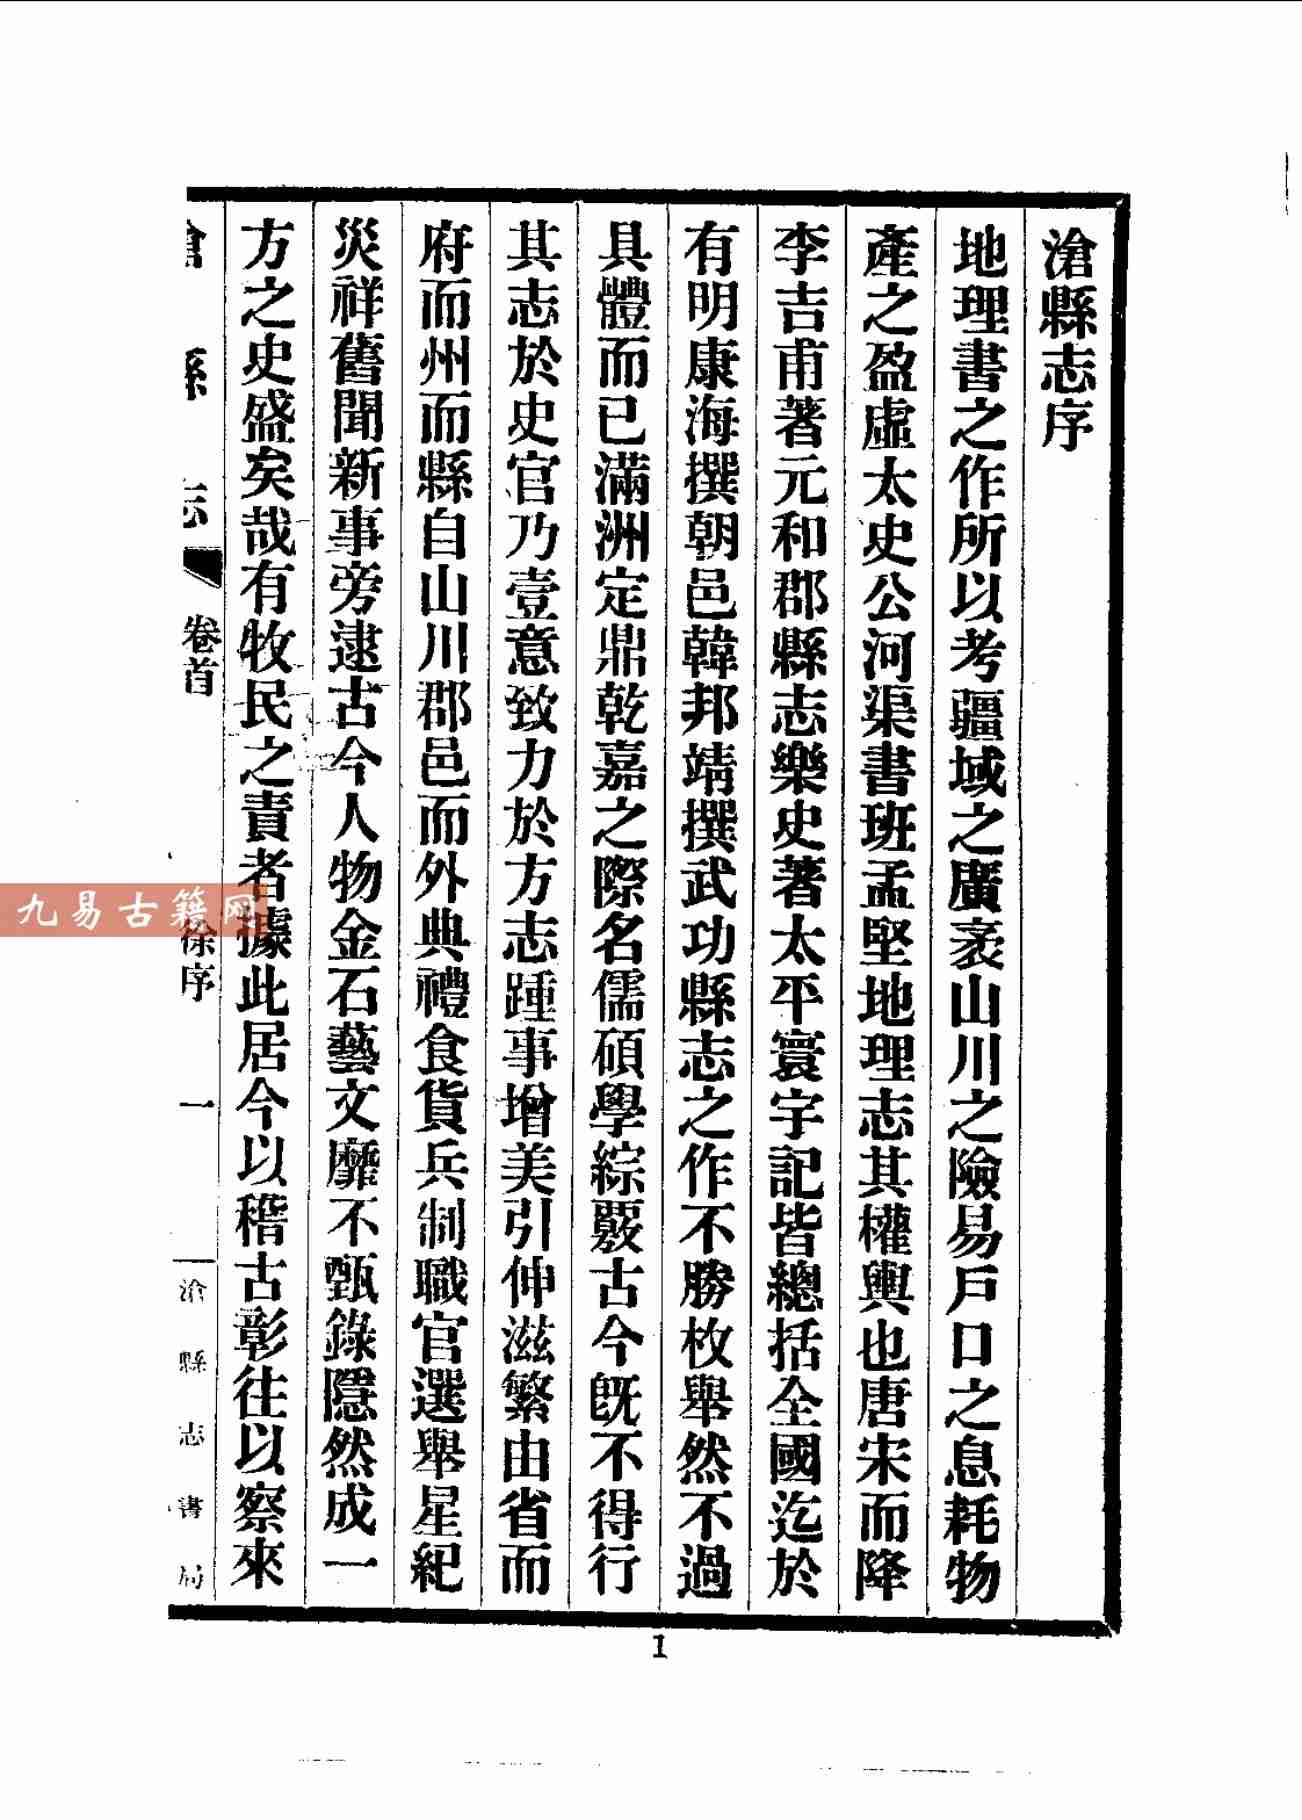 滄縣志序
地理書之作所以考疆域之廣袤山川之險易戶口之息耗物
產之盈虛太史公河渠書班孟堅地理志其權輿也唐宋而降
李吉甫著元和郡縣志樂史著太平寰宇記皆總括全國迄於
有明康海撰朝邑韓邦靖撰武功縣志之作不勝枚舉然不過
具體而已滿洲定鼎乾嘉之際名儒碩學綜覈古今旣不得行
其志於史官乃壹意致力於方志踵事增美引伸滋繁由省而
府而州而縣自山川郡邑而外典禮食貨兵制職官選舉星紀
災祥舊聞新事旁逮古今人物金石藝文靡不甄錄隱然成一
方之史盛矣哉有牧民之責者據此居今以稽古彰往以察來
滄縣志 卷首 徐序 一 滄縣志書局
九易古籍网
1